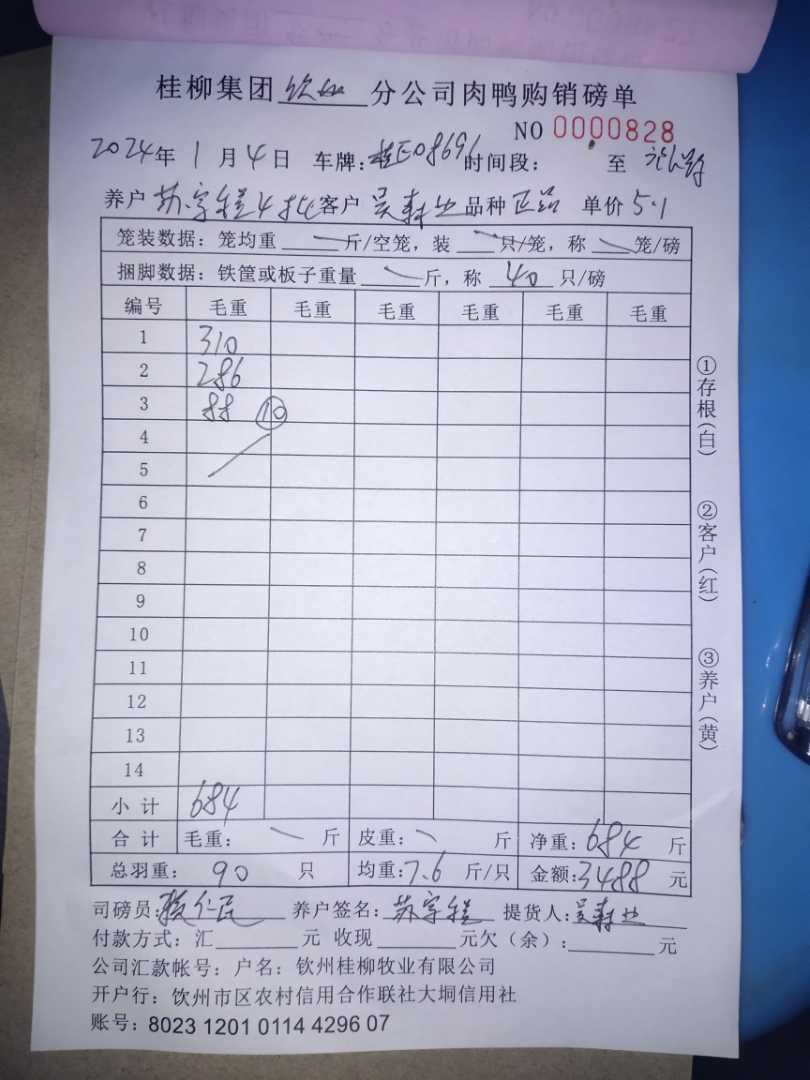 桂柳集团 钦州 分公司肉鸭购销磅单
NO 0000828
2024年 1月4日 车牌:桂E08696 时间段: 至
养户 苏宗程4批 客户 吴寿业 品种 正品 单价 5.1
笼装数据:笼均重 斤/空笼,装 只/笼,称 笼/磅
捆脚数据:铁筐或板子重量 斤,称 40 只/磅
编号 毛重 毛重 毛重 毛重 毛重 毛重
1 310
2 286
3 88 ⑩
4
5
6
7
8
9
10
11
12
13
14
小计 684
合计 毛重: 斤 皮重: 斤 净重:684 斤
总羽重: 90 只 均重:7.6 斤/只 金额:3488 元
司磅员: 仁民 养户签名:苏宗程 提货人:吴寿业
付款方式:汇 元 收现 元欠(余): 元
公司汇款帐号:户名:钦州桂柳牧业有限公司
开户行:钦州市区农村信用合作联社大垌信用社
账号:8023 1201 0114 4296 07
①存根(白)
②客户(红)
③养户(黄)